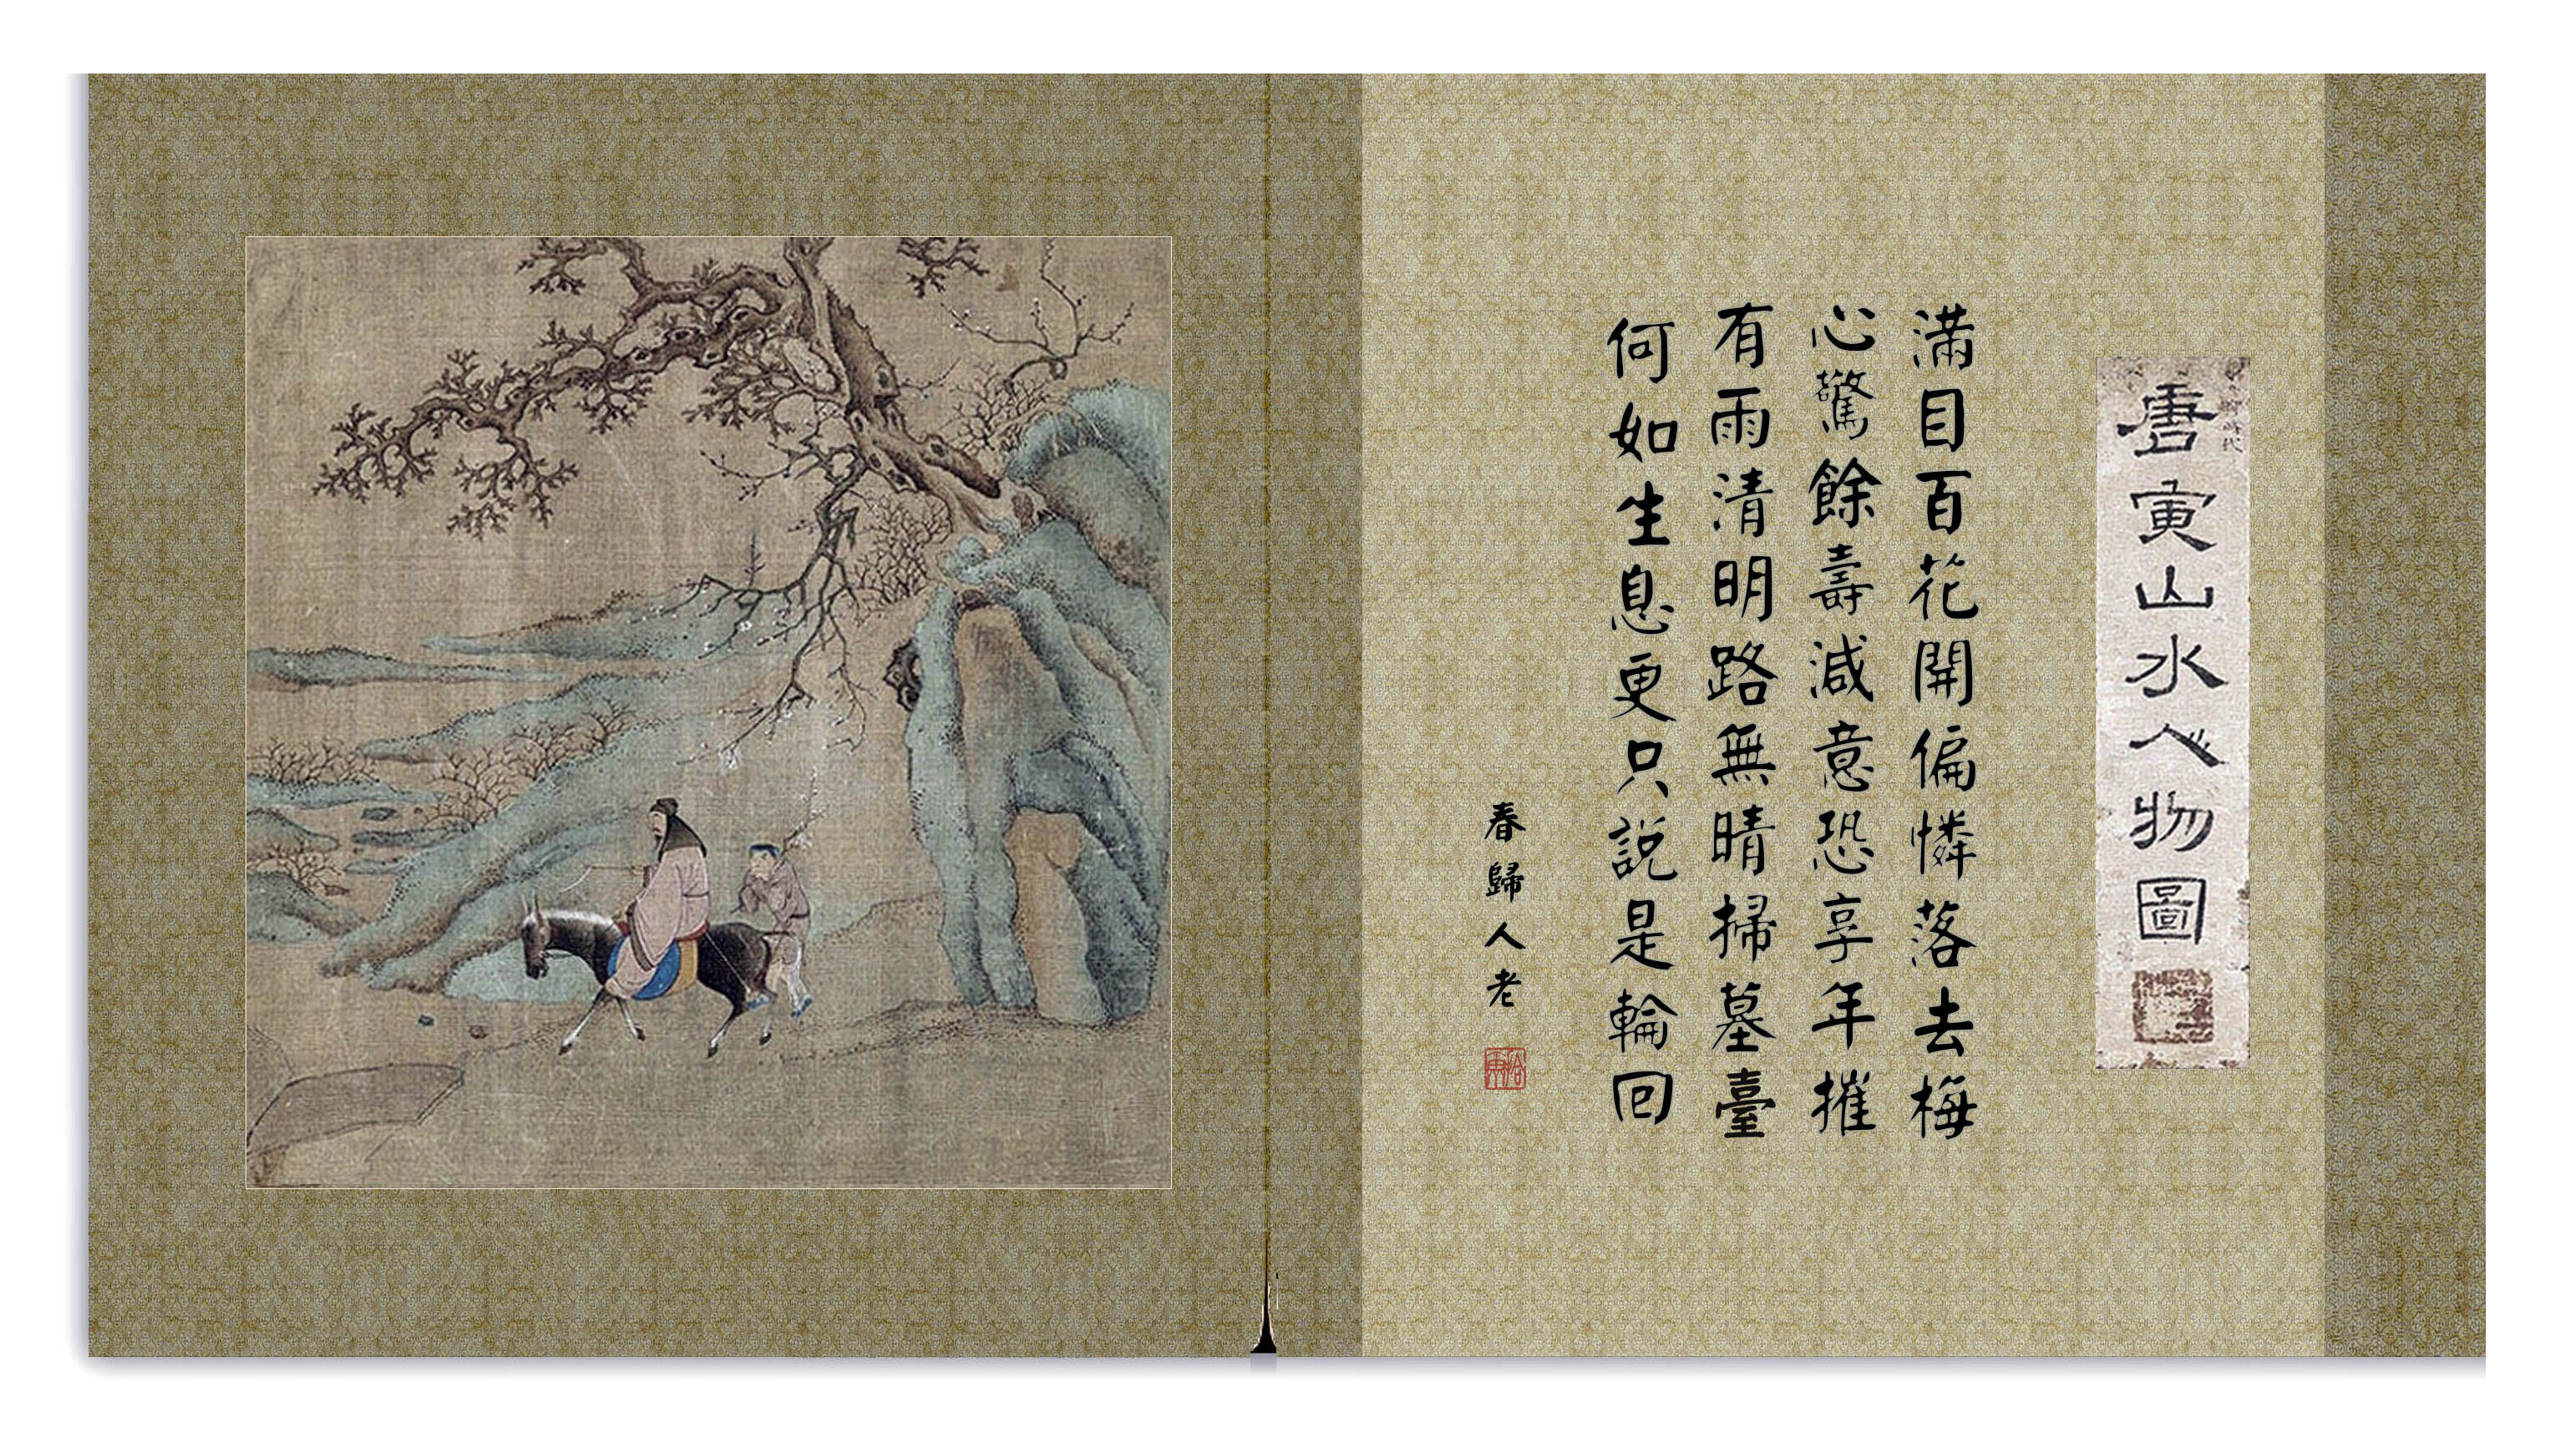 唐寅山水人物圖
滿目百花開偏憐落去梅
心驚餘壽減意恐享年摧
有雨清明路無晴掃墓臺
何如生息更只說是輪回
春歸人老